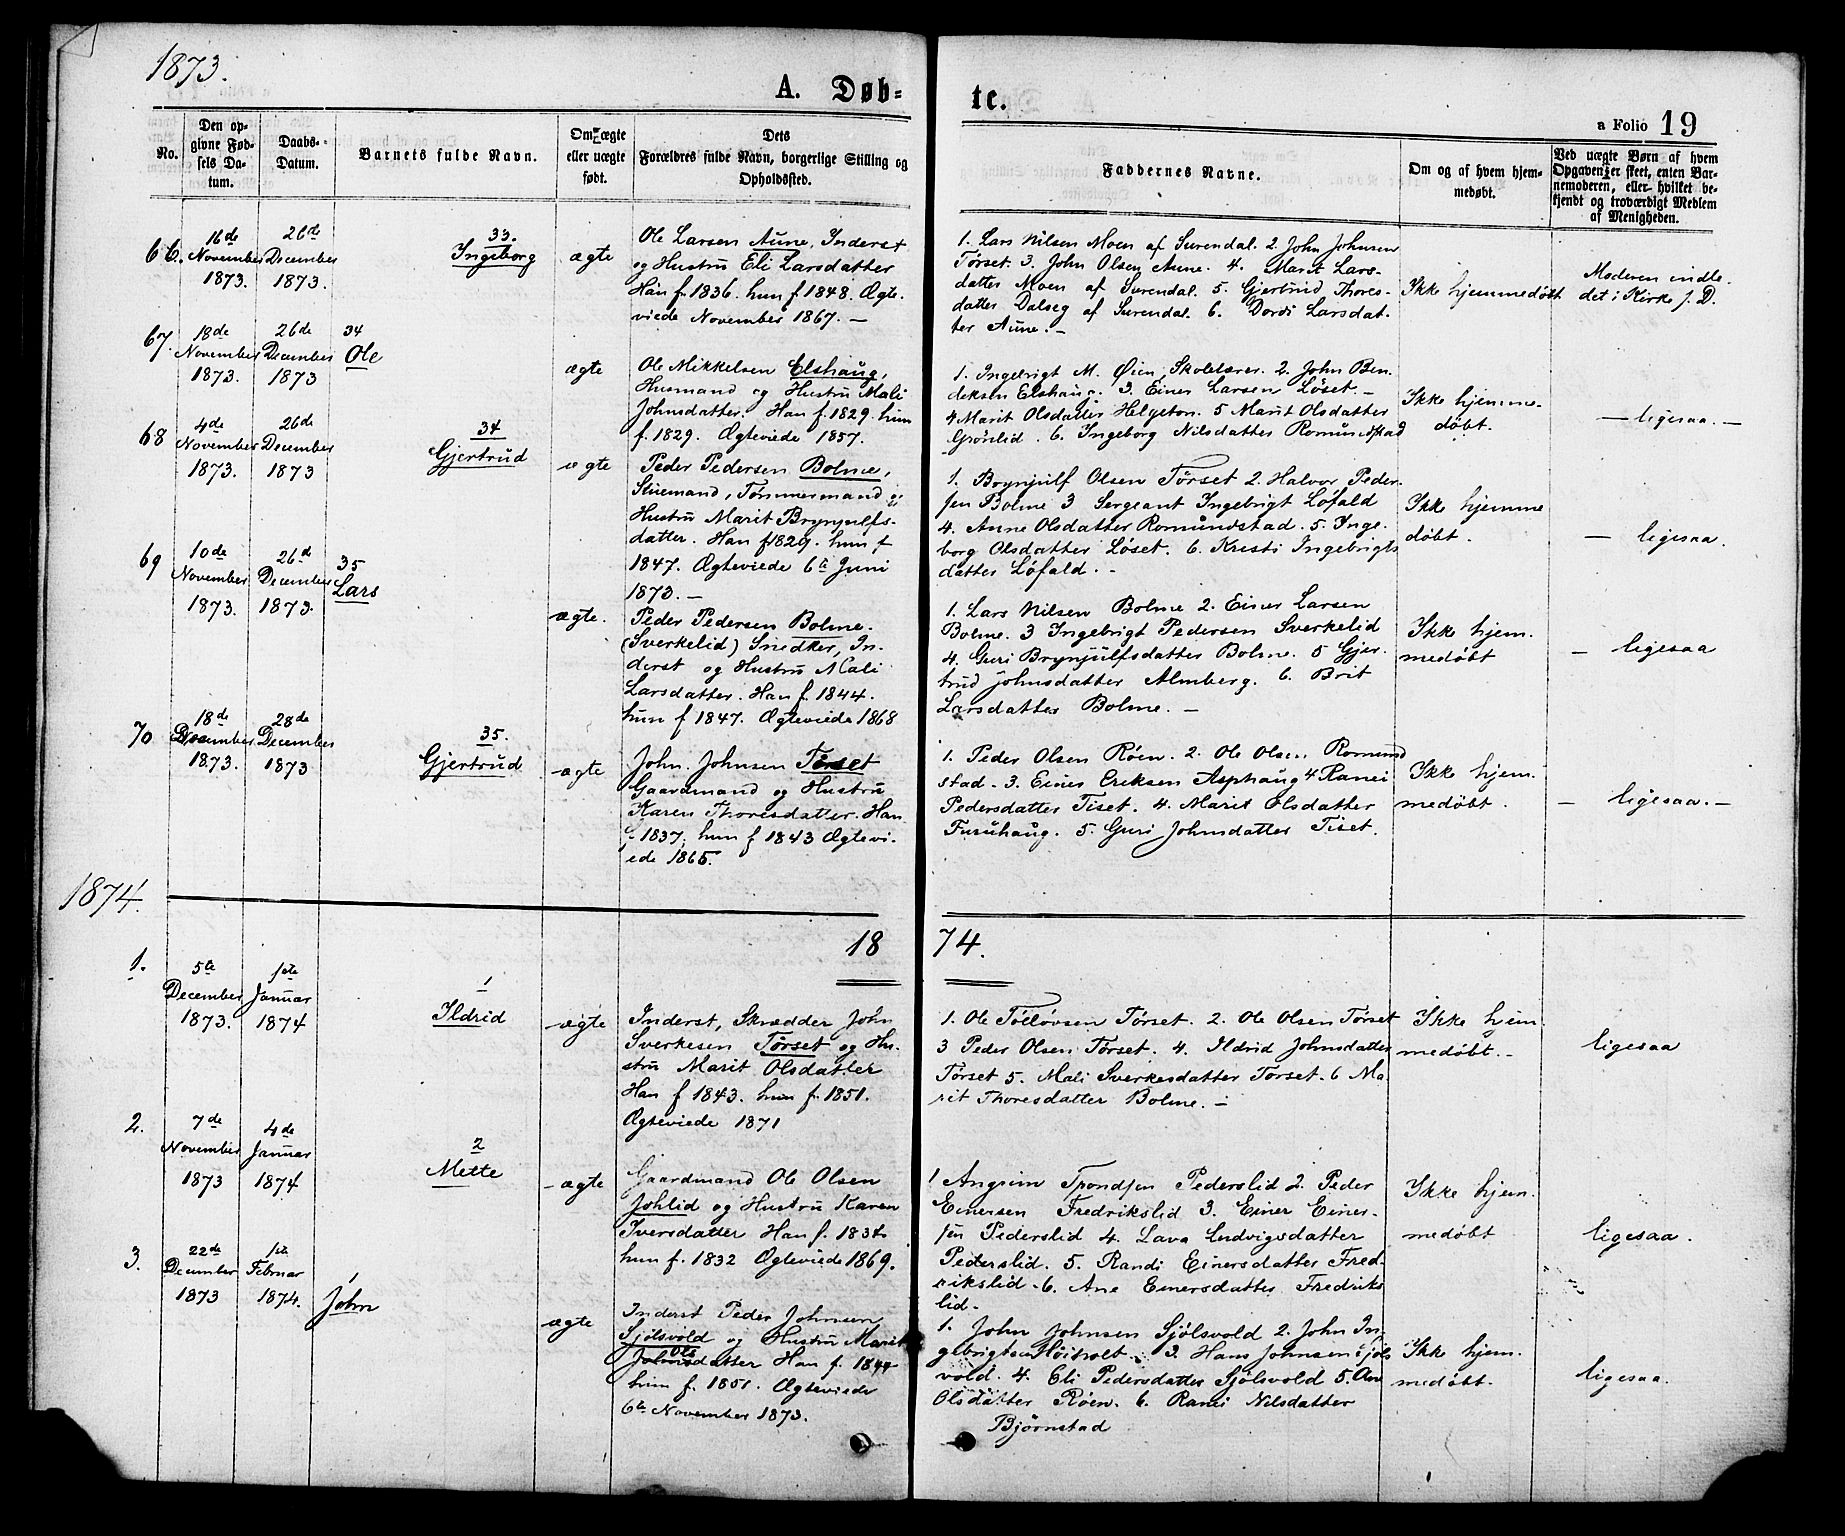 1873.
A. Døb-
te.
a Folio 19
No.
Den op-
givne Fød-
sels Da-
tum.
Daabs-
Datum.
Barnets fulde Navn.
Om ægte
eller uægte
født.
Dets
Forældres fulde Navn, borgerlige Stilling og
Opholdssted.
Faddernes Navne.
Om og af hvem hjem-
medøbt.
Ved uægte Børn af hvem
Opgaven er skeet, enten Bar-
nemoderen, eller hvilket be-
kjendt og troværdigt Medlem
af Menigheden.
66.
16de
November
1873.
26de
December
1873.
33.
Ingeborg
ægte
Ole Larsen Aune, Inderst
og Hustru Eli Larsdatter
Han f. 1836. hun f. 1848. Ægte-
viede November 1867. —
1. Lars Nilsen Moen af Surendal. 2. John Johnsen
Tørset. 3. John Olsen Aune. 4. Marit Lars-
datter Moen af Surendal. 5. Gjertrud Thores-
datter Dalseg af Surendal. 6. Dordi Larsdat-
ter Aune. —
Ikke hjemmedøbt
Moderen indle-
det i Kirke f. D.
67.
18de
November
1873.
26de
December
1873
34
Ole
ægte
Ole Mikkelsen Elshaug,
Husmand og Hustru Mali
Johnsdatter. Han f. 1829. hun
f. 1829. Ægteviede 1857.
1. Ingebrigt M. Øien, Skolelærer. 2. John Ben-
diksen Elshaug. 3. Einer Larsen Løset. —
4 Marit Olsdatter Helgeton. 5 Marit Olsdatter
Grønlid. 6. Ingeborg Nilsdatter Romundstad
Ikke hjemme-
døbt.
— ligesaa. —
68
4de
November
1873.
26de
December
1873
34
Gjertrud
ægte
Peder Pedersen Bolme,
Stuemand, Tømmermand og
Hustru Marit Brynjulfs-
datter. Han f 1829. hun f
1847. Ægteviede 6te Juni
1873. —
1. Brynjulf Olsen Tørset 2. Halvor Peder-
sen Bolme 3 Sergeant Ingebrigt Løfald
4. Anne Olsdatter Romundstad. 5. Inge-
borg Olsdatter Løset. 6. Kristi Ingebrigts
datter Løfald. —
Ikke hjemme
døbt.
— ligesaa.
69
10de
November
1873.
26d
December
1873.
35
Lars
ægte.
Peder Pedersen Bolme.
(Sverkelid) Snedker, In-
derst og Hustru Mali
Larsdatter. Han f. 1844.
hun f 1847. Ægteviede 1868
1. Lars Nilsen Bolme 2. Einer Larsen
Bolme. 3 Ingebrigt Pedersen Sverkelid
4. Guri Brynjulfsdatter Bolme. 5 Gjer-
trud Johnsdatter Almberg. 6. Brit
Larsdatter Bolme. —
Ikke hjem-
medøbt
— ligesaa
70
18de
December
1873.
28de
December
1873
35.
Gjertrud
ægte
John Johnsen Tørset
Gaardmand og Hustru
Karen Thoresdatter. Han
f. 1837, hun f 1843 Ægtevi-
ede 1865.
1. Peder Olsen Røen. 2. Ole Olsen Romund
stad. 3. Einer Eriksen Asphaug 4 Ranei
Pedersdatter Tiset. 4. Marit Olsdatter
Furuhaug. 5. Guri Johnsdatter Tiset.
Ikke hjem-
medøbt.
— ligesaa. —
1874.
18 74.
1.
5te
December
1873.
1ste
Januar
1874
1
Ildrid
ægte
Inderst, Skrædder John
Sverkesen Tørset og Hu-
stru Marit Olsdatter
Han f 1843. hun f. 1851.
Ægteviede 1871
1. Ole Tølløvsen Tørset. 2. Ole Olsen Tørset
3 Peder Olsen Tørset. 4. Ildrid Johnsdatter
Tørset 5. Mali Sverkesdatter Torset. 6 Ma-
rit Thoresdatter Bolme. —
Ikke hjem-
medøbt. —
ligesaa
2.
7de
November
1873
4de
Januar
1874
2
Mette
ægte
Gaardmand Ole Olsen
Johlid og Hustru Karen
Iversdatter Han f. 1834
hun f. 1832 Ægteviede 1869.
1 Angrim Trondsen Pederslid 2. Peder
Einersen Fredrikslid 3. Einer Einer-
sen Pederslid 4. Lava Ludvigsdatter
Pederslid. 5. Randi Einersdatter Fred-
rikslid. 6. Ane Einersdatter Fredriks
lid.
Ikke hjem-
medøbt
ligesaa.
3.
22de
December
1873
1ste
Februar
1874.
1
John
ægte
Inderst Peder Johnsen
Sjølsvold og Hustru Marit
Ols
Johnsdatter Han f. 1844
hun f. 1851. Ægteviede
6te November 1873.
1. John Johnsen Sjølsvold 2. John In-
gebrigtsen Høiholt. 3. Hans Johnsen Sjøls
vold. 4. Eli Pedersdatter Sjølsvold 5.
Olsdatter Røen. 6. Ranei Nilsdatter
Bjørnstad
Ikke hjem-
medøbt.
ligesaa.